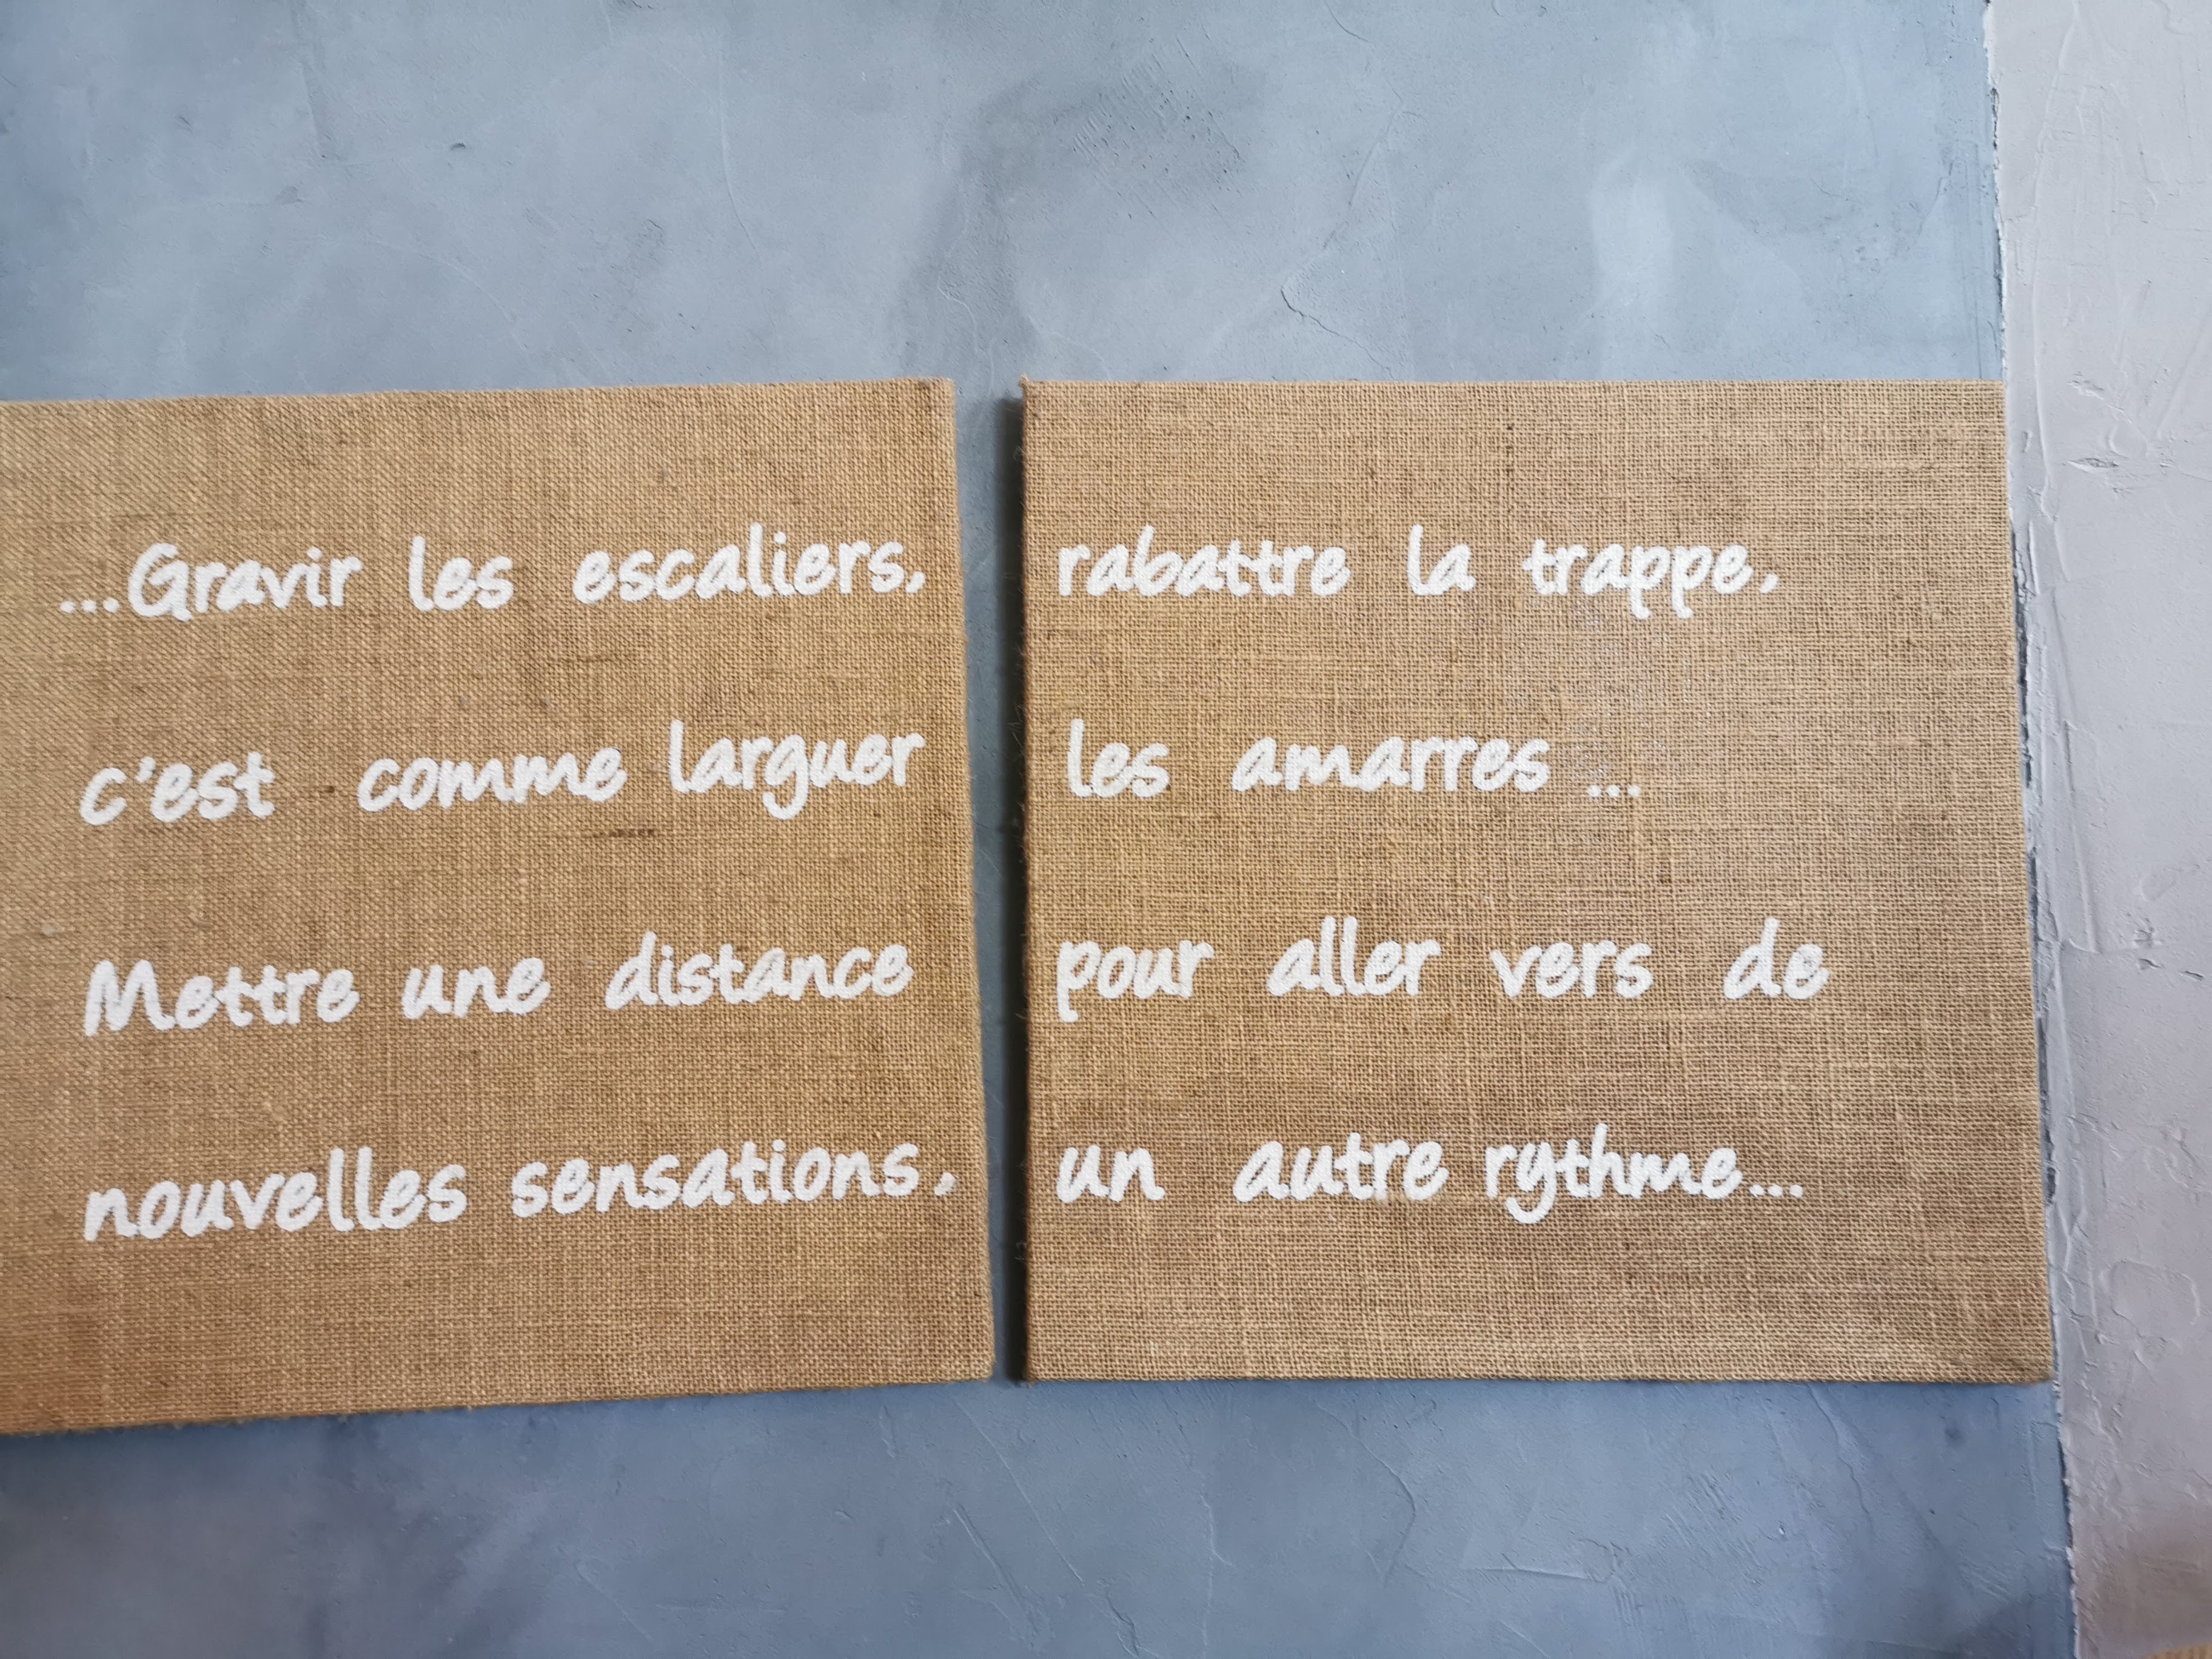 ...Gravir les escaliers, rabattre la trappe,
c'est comme larguer les amarres ...
Mettre une distance pour aller vers de
nouvelles sensations, un autre rythme...